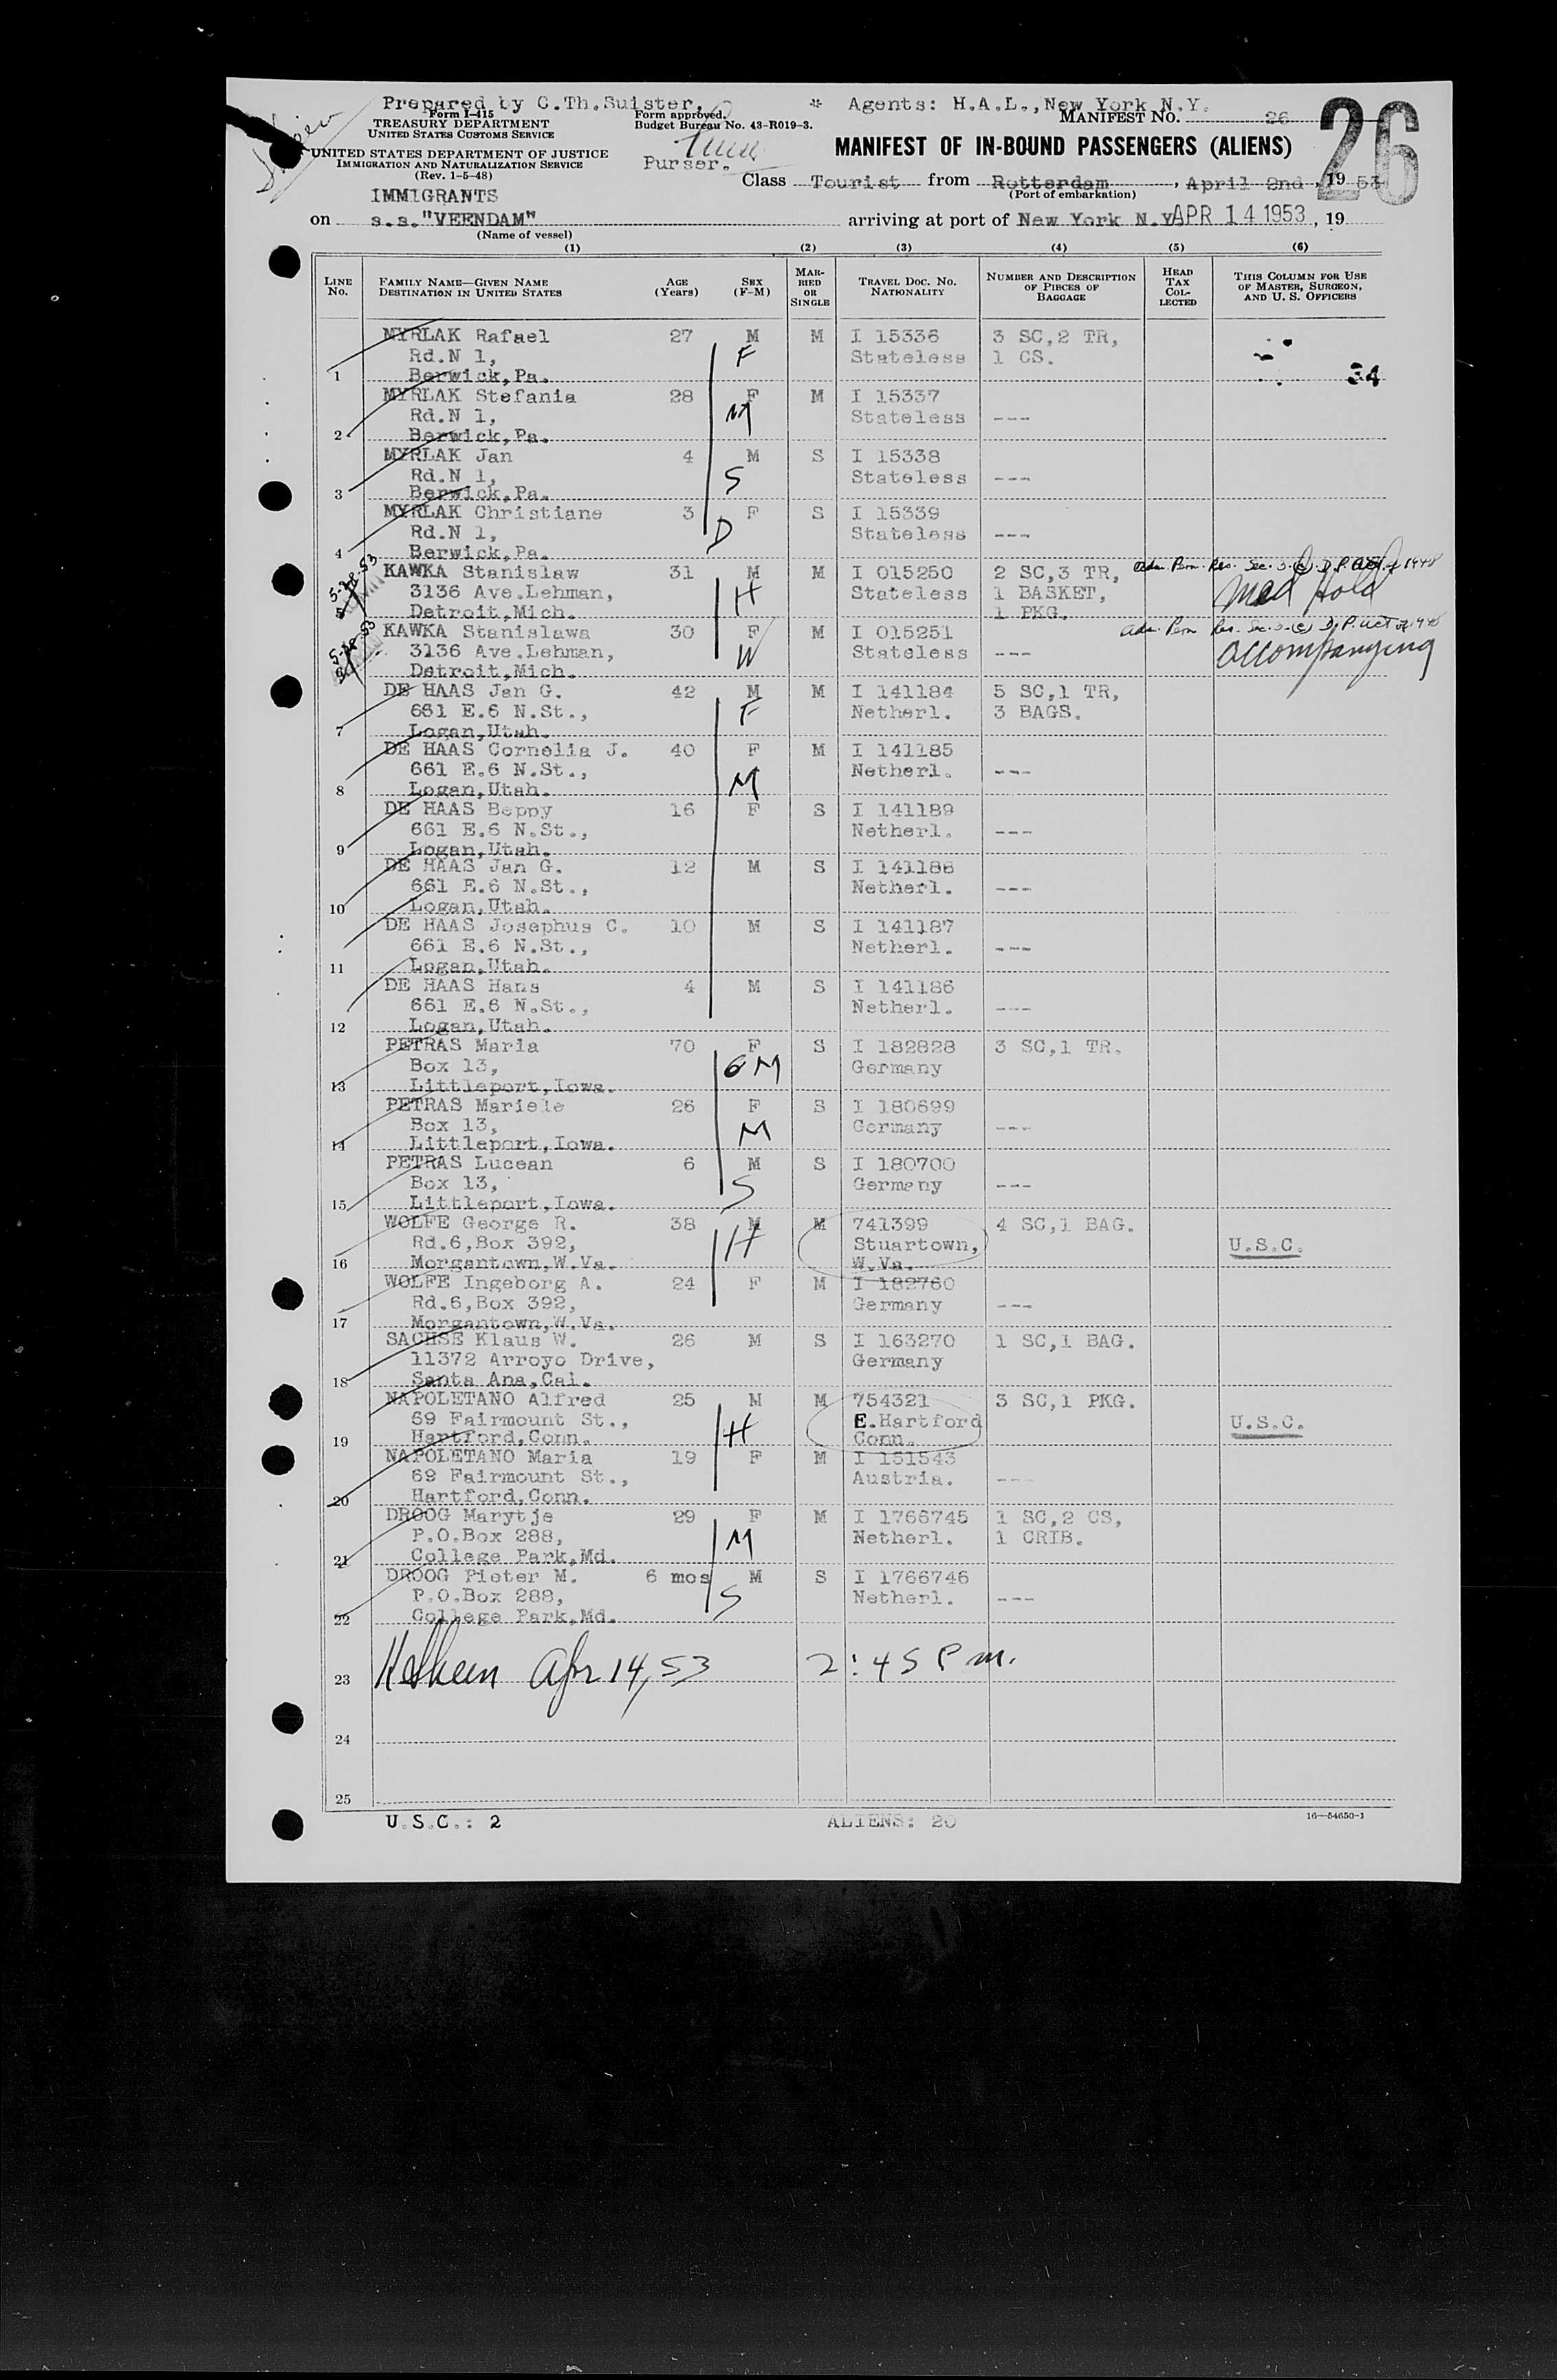 Prepared by C.Th.Suister, * Agents: H.A.L.,New York N.Y.
Form I-415
TREASURY DEPARTMENT
UNITED STATES CUSTOMS SERVICE
Form approved.
Budget Bureau No. 43-R019-3.
MANIFEST NO. 26
26
UNITED STATES DEPARTMENT OF JUSTICE
IMMIGRATION AND NATURALIZATION SERVICE
(Rev. 1-5-48)
Purser.
MANIFEST OF IN-BOUND PASSENGERS (ALIENS)
Class Tourist from Rotterdam, April 2nd, 1953
(Port of embarkation)
IMMIGRANTS
on s.s."VEENDAM" arriving at port of New York N.Y. APR 14 1953, 19
(Name of vessel)
(1) (2) (3) (4) (5) (6)
LINE NO. FAMILY NAME—GIVEN NAME DESTINATION IN UNITED STATES AGE (Years) SEX (F-M) MARRIED OR SINGLE TRAVEL DOC. NO. NATIONALITY NUMBER AND DESCRIPTION OF PIECES OF BAGGAGE HEAD TAX COLLECTED THIS COLUMN FOR USE OF MASTER, SURGEON, AND U. S. OFFICERS
MYRLAK Rafael 27 M M I 15336 3 SC,2 TR,
Rd.N 1, F Stateless 1 CS.
1 Berwick,Pa. 34
MYRLAK Stefania 28 F M I 15337
Rd.N 1, M Stateless ---
2 Berwick,Pa.
MYRLAK Jan 4 M S I 15338
Rd.N 1, S Stateless ---
3 Berwick,Pa.
MYRLAK Christiane 3 F S I 15339
Rd.N 1, D Stateless ---
4 Berwick,Pa.
KAWKA Stanislaw 31 M M I 015250 2 SC,3 TR, Adm. Perm. Res. Sec. 3.(c). D.P. Act of 1948
3136 Ave.Lehman, H Stateless 1 BASKET, Med Hold
5 Detroit,Mich. 1 PKG.
KAWKA Stanislawa 30 F M I 015251 Adm. Perm Res. Sec. 3.(c) D.P. Act of 1948
3136 Ave.Lehman, W Stateless --- accompanying
6 Detroit,Mich.
DE HAAS Jan G. 42 M M I 141184 5 SC,1 TR,
661 E.6 N.St., F Netherl. 3 BAGS.
7 Logan,Utah.
DE HAAS Cornelia J. 40 F M I 141185
661 E.6 N.St., M Netherl. ---
8 Logan,Utah.
DE HAAS Beppy 16 F S I 141189
661 E.6 N.St., Netherl. ---
9 Logan,Utah.
DE HAAS Jan G. 12 M S I 141188
661 E.6 N.St., Netherl. ---
10 Logan,Utah.
DE HAAS Josephus C. 10 M S I 141187
661 E.6 N.St., Netherl. ---
11 Logan,Utah.
DE HAAS Hans 4 M S I 141186
661 E.6 N.St., Netherl. ---
12 Logan,Utah.
PETRAS Maria 70 F S I 182828 3 SC,1 TR.
Box 13, GM Germany
13 Littleport,Iowa.
PETRAS Mariele 26 F S I 180699
Box 13, M Germany ---
14 Littleport,Iowa.
PETRAS Lucean 6 M S I 180700
Box 13, S Germany ---
15 Littleport,Iowa.
WOLFE George R. 38 M M 741399 4 SC,1 BAG.
Rd.6,Box 392, H Stuartown, U.S.C.
16 Morgantown,W.Va. W.Va.
WOLFE Ingeborg A. 24 F M I 182760
Rd.6,Box 392, Germany ---
17 Morgantown,W.Va.
SACHSE Klaus W. 26 M S I 163270 1 SC,1 BAG.
11372 Arroyo Drive, Germany
18 Santa Ana,Cal.
NAPOLETANO Alfred 25 M M 754321 3 SC,1 PKG.
69 Fairmount St., H E.Hartford U.S.C.
19 Hartford,Conn. Conn.
NAPOLETANO Maria 19 F M I 151543
69 Fairmount St., Austria. ---
20 Hartford,Conn.
DROOG Marytje 29 F M I 1766745 1 SC,2 CS,
P.O.Box 288, M Netherl. 1 CRIB.
21 College Park,Md.
DROOG Pieter M. 6 mos M S I 1766746
P.O.Box 288, S Netherl. ---
22 College Park,Md.
23 Apr 14, 53 2:45 P m.
24
25
U.S.C.: 2 ALIENS: 20 16—54650-1